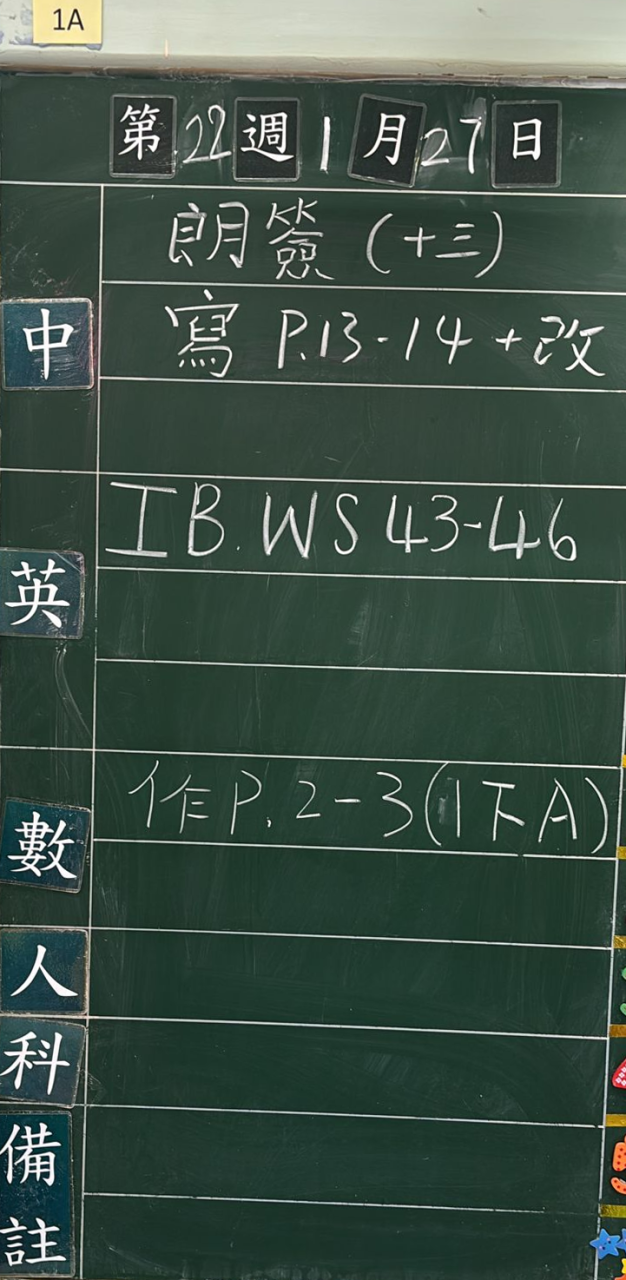 1A
第22週1月27日
朗簽(十三)
中
寫 P.13-14+改
IB.WS 43-46
英
作P.2-3(1下A)
數
人
科
備
註